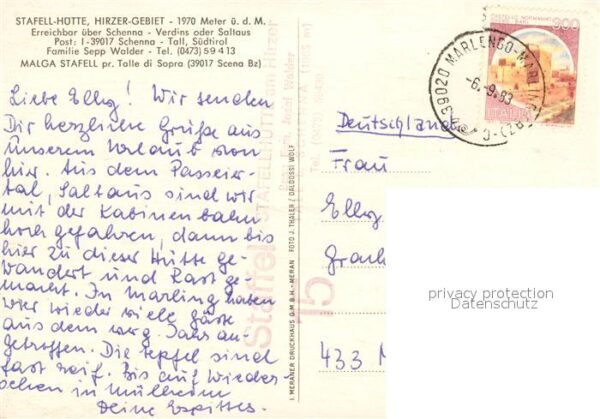 STAFELL-HÜTTE, HIRZER-GEBIET - 1970 Meter ü. d. M.
Erreichbar über Schenna - Verdins oder Saltaus
Post: I-39017 Schenna - Tall, Südtirol
Familie Sepp Walder - Tel. (0473) 59 4 13
MALGA STAFELL pr. Talle di Sopra (39017 Scena Bz)
Liebe Elly! Wir senden
Dir herzliche Grüße aus
unserem Urlaub von
hier. Aus dem Passeier-
tal, Saltaus sind wir
mit der Kabinenbahn
hoch gefahren, dann bis
hier zu dieser Hütte ge-
wandert und Rast ge-
macht. In Marling haben
wir wieder viele Gäste
aus dem vorg. Jahr an-
getroffen. Die Äpfel sind
fast reif. Bis auf Wieder-
sehen in Mülheim
Deine
I. MERANER DRUCKHAUS G.M.B.H.-MERAN FOTO J. THALER / DALDOSSI WOLF
39020 MARLENGO-MARLING (BZ)
-6.-9.83
300
ITALIA
Deutschland
Frau
Elly
433 M
privacy protection
Datenschutz